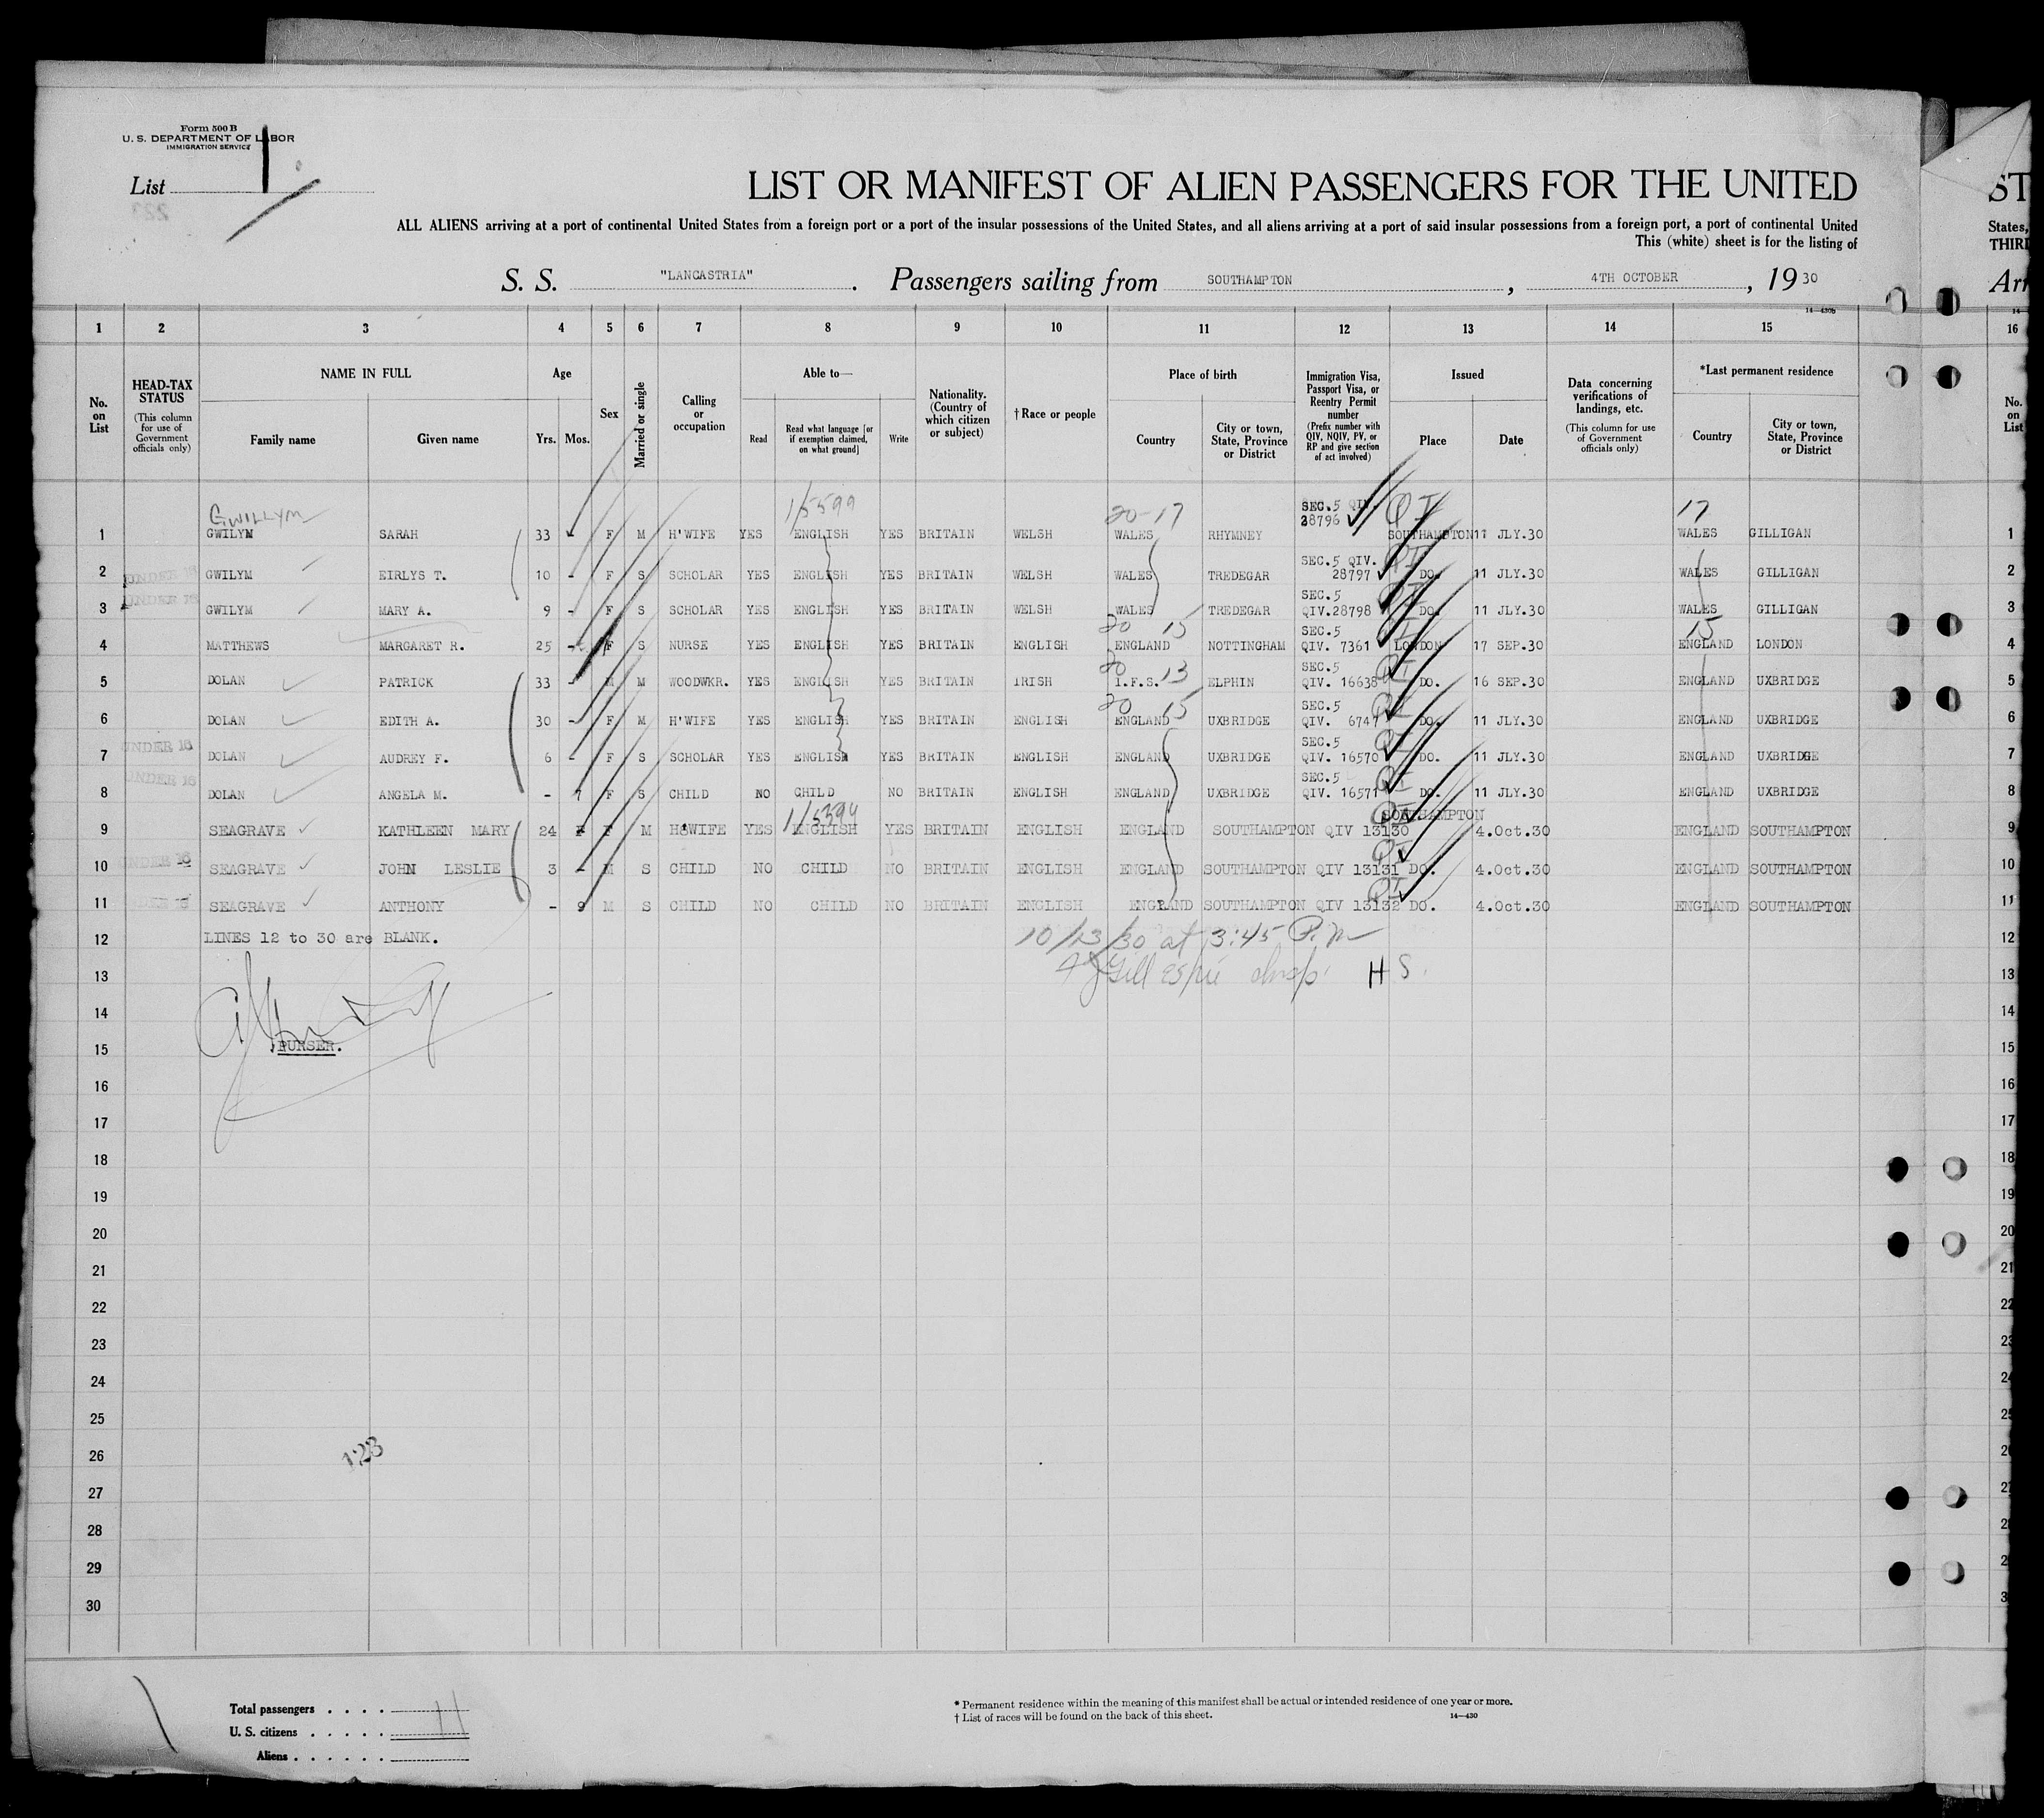 Form 500 B
U. S. DEPARTMENT OF LABOR
IMMIGRATION SERVICE
List 1
LIST OR MANIFEST OF ALIEN PASSENGERS FOR THE UNITED ST
ALL ALIENS arriving at a port of continental United States from a foreign port or a port of the insular possessions of the United States, and all aliens arriving at a port of said insular possessions from a foreign port, a port of continental United States,
This (white) sheet is for the listing of THIRD
S. S. "LANCASTRIA". Passengers sailing from SOUTHAMPTON, 4TH OCTOBER, 1930 Arr
14—430b
1 2 3 4 5 6 7 8 9 10 11 12 13 14 15 16
No. on List
HEAD-TAX STATUS (This column for use of Government officials only)
NAME IN FULL
Family name Given name
Age
Yrs. Mos.
Sex
Married or single
Calling or occupation
Able to—
Read
Read what language [or if exemption claimed, on what ground]
Write
Nationality. (Country of which citizen or subject)
† Race or people
Place of birth
Country
City or town, State, Province or District
Immigration Visa, Passport Visa, or Reentry Permit number (Prefix number with QIV, NQIV, PV, or RP and give section of act involved)
Issued
Place Date
Data concerning verifications of landings, etc. (This column for use of Government officials only)
*Last permanent residence
Country
City or town, State, Province or District
No. on List
GWILLYM 1/5599 20-17 SEC.5 QIV. QI 17
1 GWILYM SARAH 33 - F M H'WIFE YES ENGLISH YES BRITAIN WELSH WALES RHYMNEY 28796 SOUTHAMPTON 11 JLY.30 WALES GILLIGAN 1
2 UNDER 16 GWILYM EIRLYS T. 10 - F S SCHOLAR YES ENGLISH YES BRITAIN WELSH WALES TREDEGAR SEC.5 QIV. 28797 QI DO. 11 JLY.30 WALES GILLIGAN 2
3 UNDER 16 GWILYM MARY A. 9 - F S SCHOLAR YES ENGLISH YES BRITAIN WELSH WALES TREDEGAR SEC.5 QIV.28798 QI DO. 11 JLY.30 WALES GILLIGAN 3
20 15 15
4 MATTHEWS MARGARET R. 25 - F S NURSE YES ENGLISH YES BRITAIN ENGLISH ENGLAND NOTTINGHAM SEC.5 QIV. 7361 QI LONDON 17 SEP.30 ENGLAND LONDON 4
20 13
5 DOLAN PATRICK 33 - M M WOODWKR. YES ENGLISH YES BRITAIN IRISH I.F.S. ELPHIN SEC.5 QIV. 16638 QI DO. 16 SEP.30 ENGLAND UXBRIDGE 5
20 15
6 DOLAN EDITH A. 30 - F M H'WIFE YES ENGLISH YES BRITAIN ENGLISH ENGLAND UXBRIDGE SEC.5 QIV. 6747 QI DO. 11 JLY.30 ENGLAND UXBRIDGE 6
7 UNDER 16 DOLAN AUDREY F. 6 - F S SCHOLAR YES ENGLISH YES BRITAIN ENGLISH ENGLAND UXBRIDGE SEC.5 QIV. 16570 QI DO. 11 JLY.30 ENGLAND UXBRIDGE 7
8 UNDER 16 DOLAN ANGELA M. - 7 F S CHILD NO CHILD NO BRITAIN ENGLISH ENGLAND UXBRIDGE SEC.5 QIV. 16571 QI DO. 11 JLY.30 ENGLAND UXBRIDGE 8
1/5594
9 SEAGRAVE KATHLEEN MARY 24 F M H'WIFE YES ENGLISH YES BRITAIN ENGLISH ENGLAND SOUTHAMPTON QIV 13130 QI SOUTHAMPTON 4.Oct.30 ENGLAND SOUTHAMPTON 9
10 UNDER 16 SEAGRAVE JOHN LESLIE 3 - M S CHILD NO CHILD NO BRITAIN ENGLISH ENGLAND SOUTHAMPTON QIV 13131 QI DO. 4.Oct.30 ENGLAND SOUTHAMPTON 10
11 UNDER 16 SEAGRAVE ANTHONY - 9 M S CHILD NO CHILD NO BRITAIN ENGLISH ENGLAND SOUTHAMPTON QIV 13132 QI DO. 4.Oct.30 ENGLAND SOUTHAMPTON 11
12 LINES 12 to 30 are BLANK. 10/13/30 at 3:45 P.M 12
13 Gillespie Insp. H S. 13
14 14
15 PURSER. 15
16 16
17 17
18 18
19 19
20 20
21 21
22 22
23 23
24 24
25 25
26 26
128
27 27
28 28
29 29
30
Total passengers . . . . 11
U. S. citizens . . . . .
Aliens . . . . . .
* Permanent residence within the meaning of this manifest shall be actual or intended residence of one year or more.
† List of races will be found on the back of this sheet.
14—430